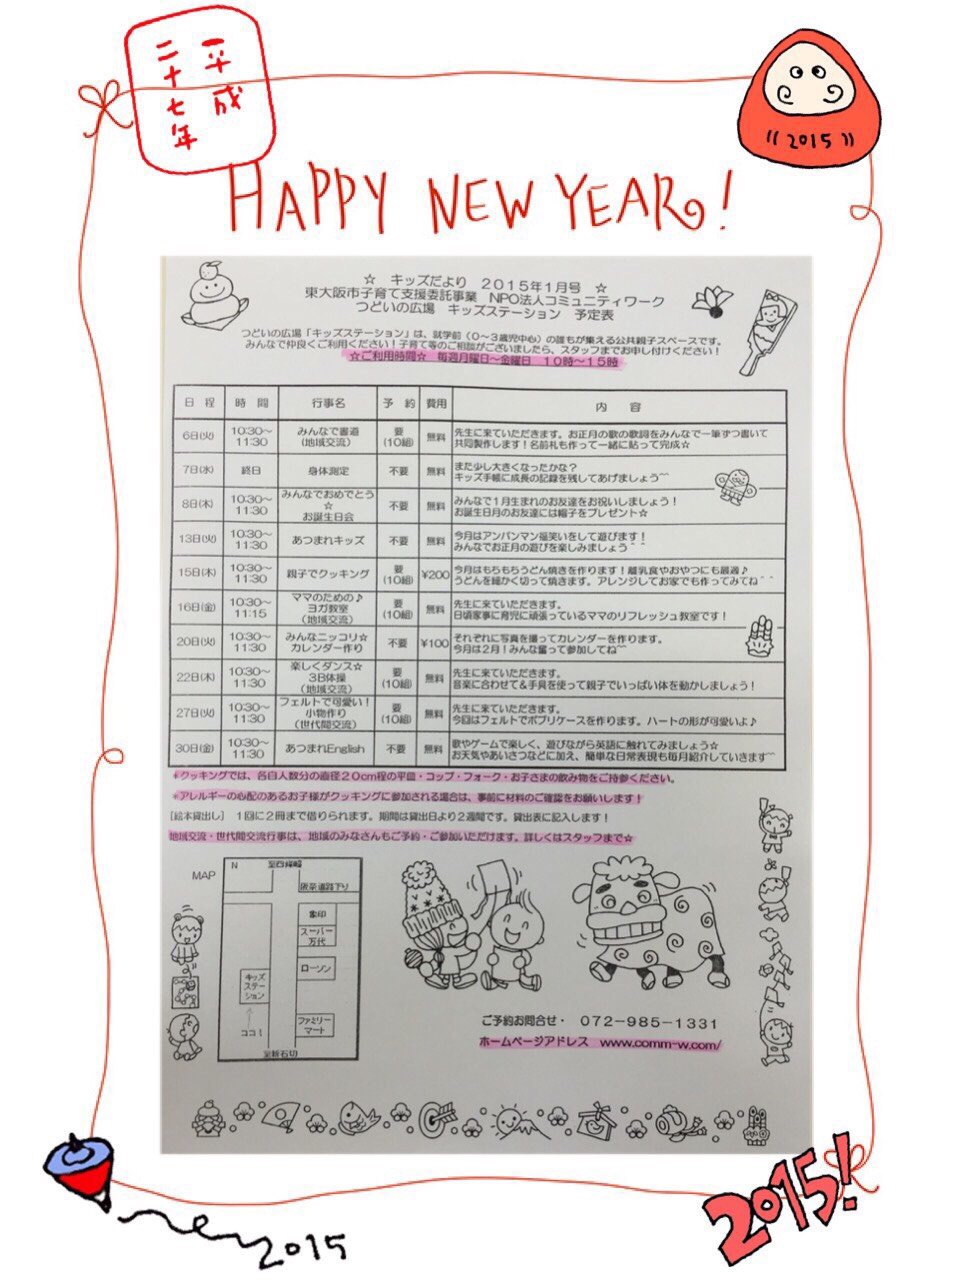 平成
二十七年
2015
HAPPY NEW YEAR!
☆ キッズだより 2015年1月号 ☆
東大阪市子育て支援委託事業 NPO法人コミュニティワーク
つどいの広場 キッズステーション 予定表
つどいの広場「キッズステーション」は、就学前（0～3歳児中心）の誰もが集える公共親子スペースです。
みんなで仲良くご利用ください！子育て等のご相談がございましたら、スタッフまでお申し付けください！
☆ご利用時間☆ 毎週月曜日～金曜日 10時～15時
日程 時間 行事名 予約 費用 内容
6日(火) 10:30～11:30 みんなで書道(地域交流) 要(10組) 無料 先生に来ていただきます。お正月の歌の歌詞をみんなで一筆ずつ書いて
共同製作します！名前札も作って一緒に貼って完成☆
7日(水) 終日 身体測定 不要 無料 また少し大きくなったかな？
キッズ手帳に成長の記録を残してあげましょう^^
8日(木) 10:30～11:30 みんなでおめでとう☆お誕生日会 不要 無料 みんなで1月生まれのお友達をお祝いしましょう！
お誕生日月のお友達には帽子をプレゼント☆
13日(火) 10:30～11:30 あつまれキッズ 不要 無料 今月はアンパンマン福笑いをして遊びます！
みんなでお正月の遊びを楽しみましょう^^
15日(木) 10:30～11:30 親子でクッキング 要(10組) ¥200 今月はもちもちうどん焼きを作ります！離乳食やおやつにも最適♪
うどんを細かく切って焼きます。アレンジしてお家でも作ってみてね^^
16日(金) 10:30～11:15 ママのための♪ヨガ教室(地域交流) 要(10組) 無料 先生に来ていただきます。
日頃家事に育児に頑張っているママのリフレッシュ教室です！
20日(火) 10:30～11:30 みんなニッコリ☆カレンダー作り 不要 ¥100 それぞれに写真を撮ってカレンダーを作ります。
今月は2月！みんな奮って参加してね^^
22日(木) 10:30～11:30 楽しくダンス☆3B体操(地域交流) 要(10組) 無料 先生に来ていただきます。
音楽に合わせて&手具を使って親子でいっぱい体を動かしましょう！
27日(火) 10:30～11:30 フェルトで可愛い！小物作り(世代間交流) 要(10組) 無料 先生に来ていただきます。
今回はフェルトでポプリケースを作ります。ハートの形が可愛いよ♪
30日(金) 10:30～11:30 あつまれEnglish 不要 無料 歌やゲームで楽しく、遊びながら英語に触れてみましょう☆
お天気やあいさつなどに加え、簡単な日常表現も毎月紹介していきます^^
*クッキングでは、各自人数分の直径20cm程の平皿・コップ・フォーク・お子さまの飲み物をご持参ください。
*アレルギーの心配のあるお子様がクッキングに参加される場合は、事前に材料のご確認をお願いします！
[絵本貸出し] 1回に2冊まで借りられます。期間は貸出日より2週間です。貸出表に記入します！
地域交流・世代間交流行事は、地域のみなさんもご予約・ご参加いただけます。詳しくはスタッフまで☆
MAP
N
至四條畷
阪奈道路下り
象印
スーパー
万代
ローソン
キッズ
ステー
ション
↑
ココ！
ファミリー
マート
至新石切
ご予約お問合せ・ 072-985-1331
ホームページアドレス www.comm-w.com/
2015
2015!